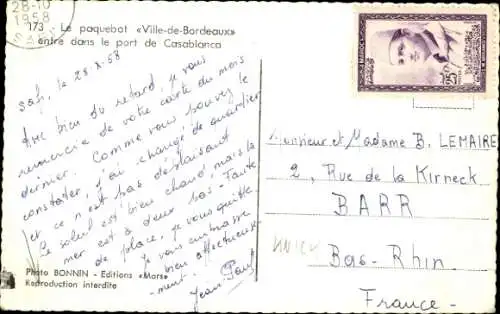 28-10
1958
173 - Le paquebot «Ville-de-Bordeaux»
entre dans le port de Casablanca
Safi, le 28-X-58
bien du retard, je vous
remercie de votre carte du mois
dernier. Comme vous pouvez le
constater, j'ai changé de quartier
et ce n'est pas déplaisant
le soleil est bien chaud, mais la
mer est à deux pas - Faute
de place, je vous quitte.
je vous embrasse
bien affectueuse-
ment - Jean-Paul
Photo BONNIN - Editions «Mars»
Reproduction interdite
MAROC
25F
Monsieur et Madame B. LEMAIRE
2, Rue de la Kirneck
BARR
Bas-Rhin
France -